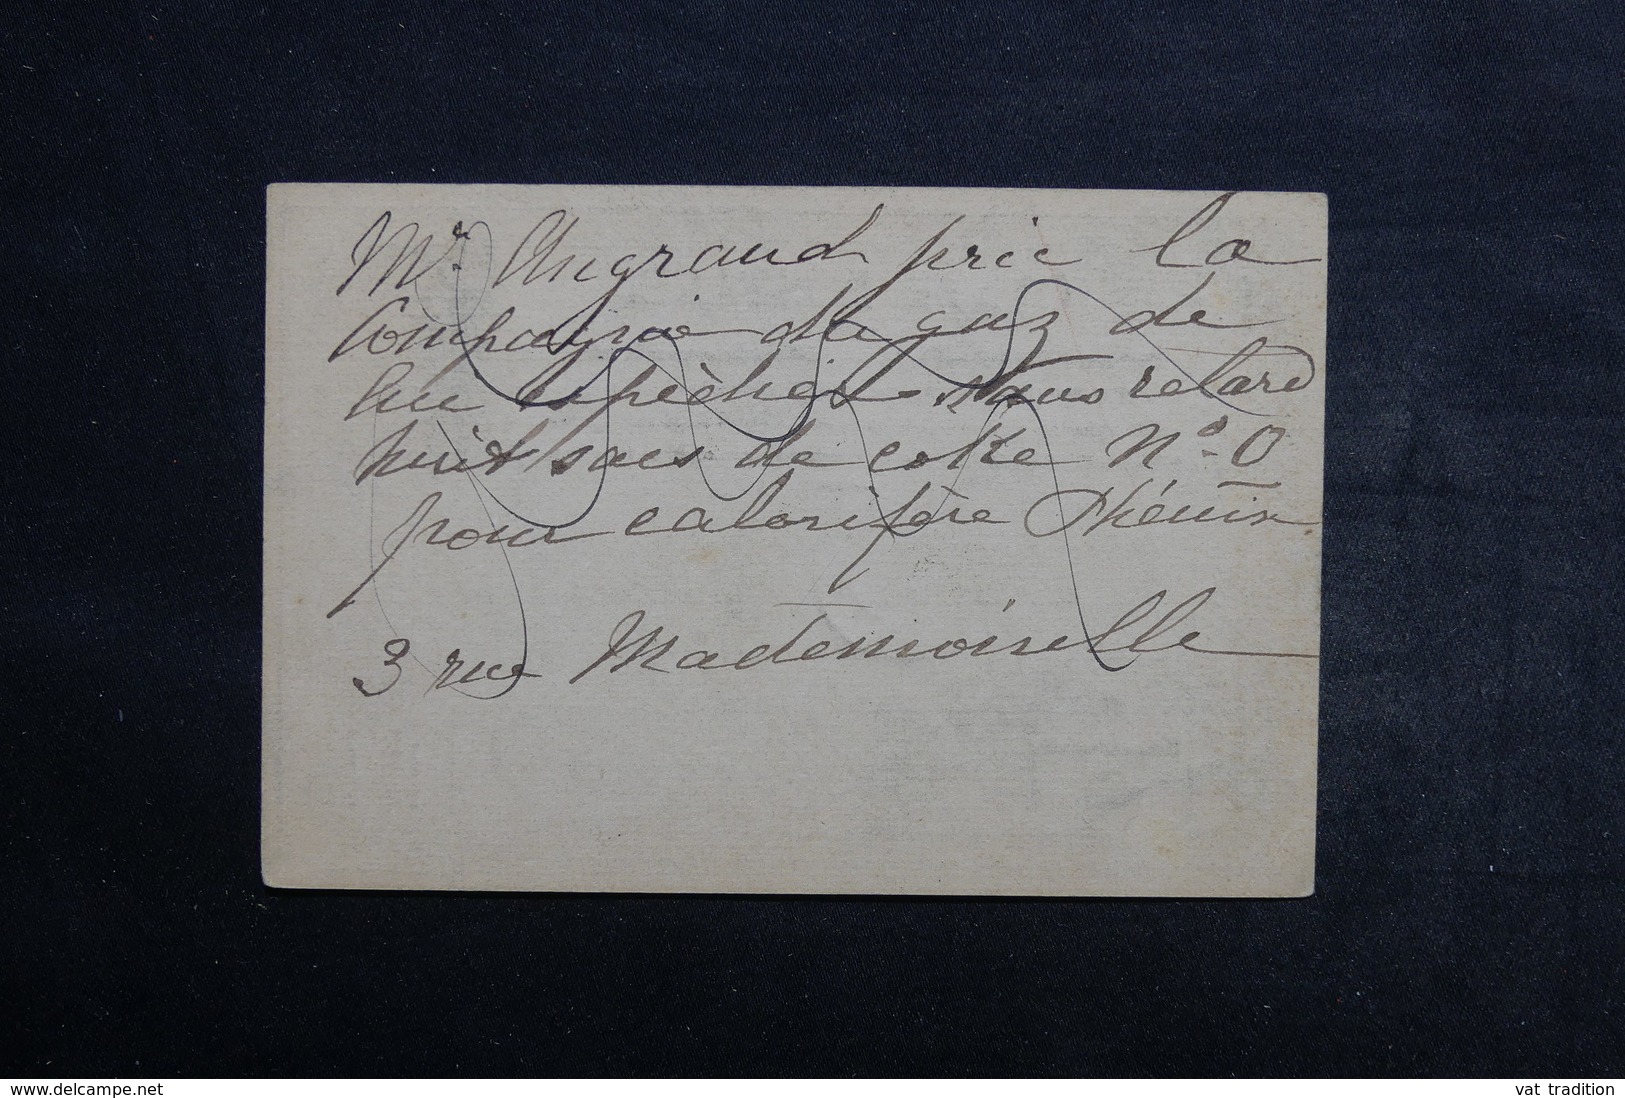 Mr. Angrand prie la
Compagnie du gaz de
lui expédier sans retard
huit sacs de coke No. 0
pour calorifère Phénix
3 rue Mademoiselle
www.delcampe.net
vat_tradition